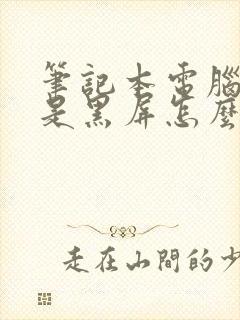 筆記本電腦
是黑屏怎麼
走在山間的少